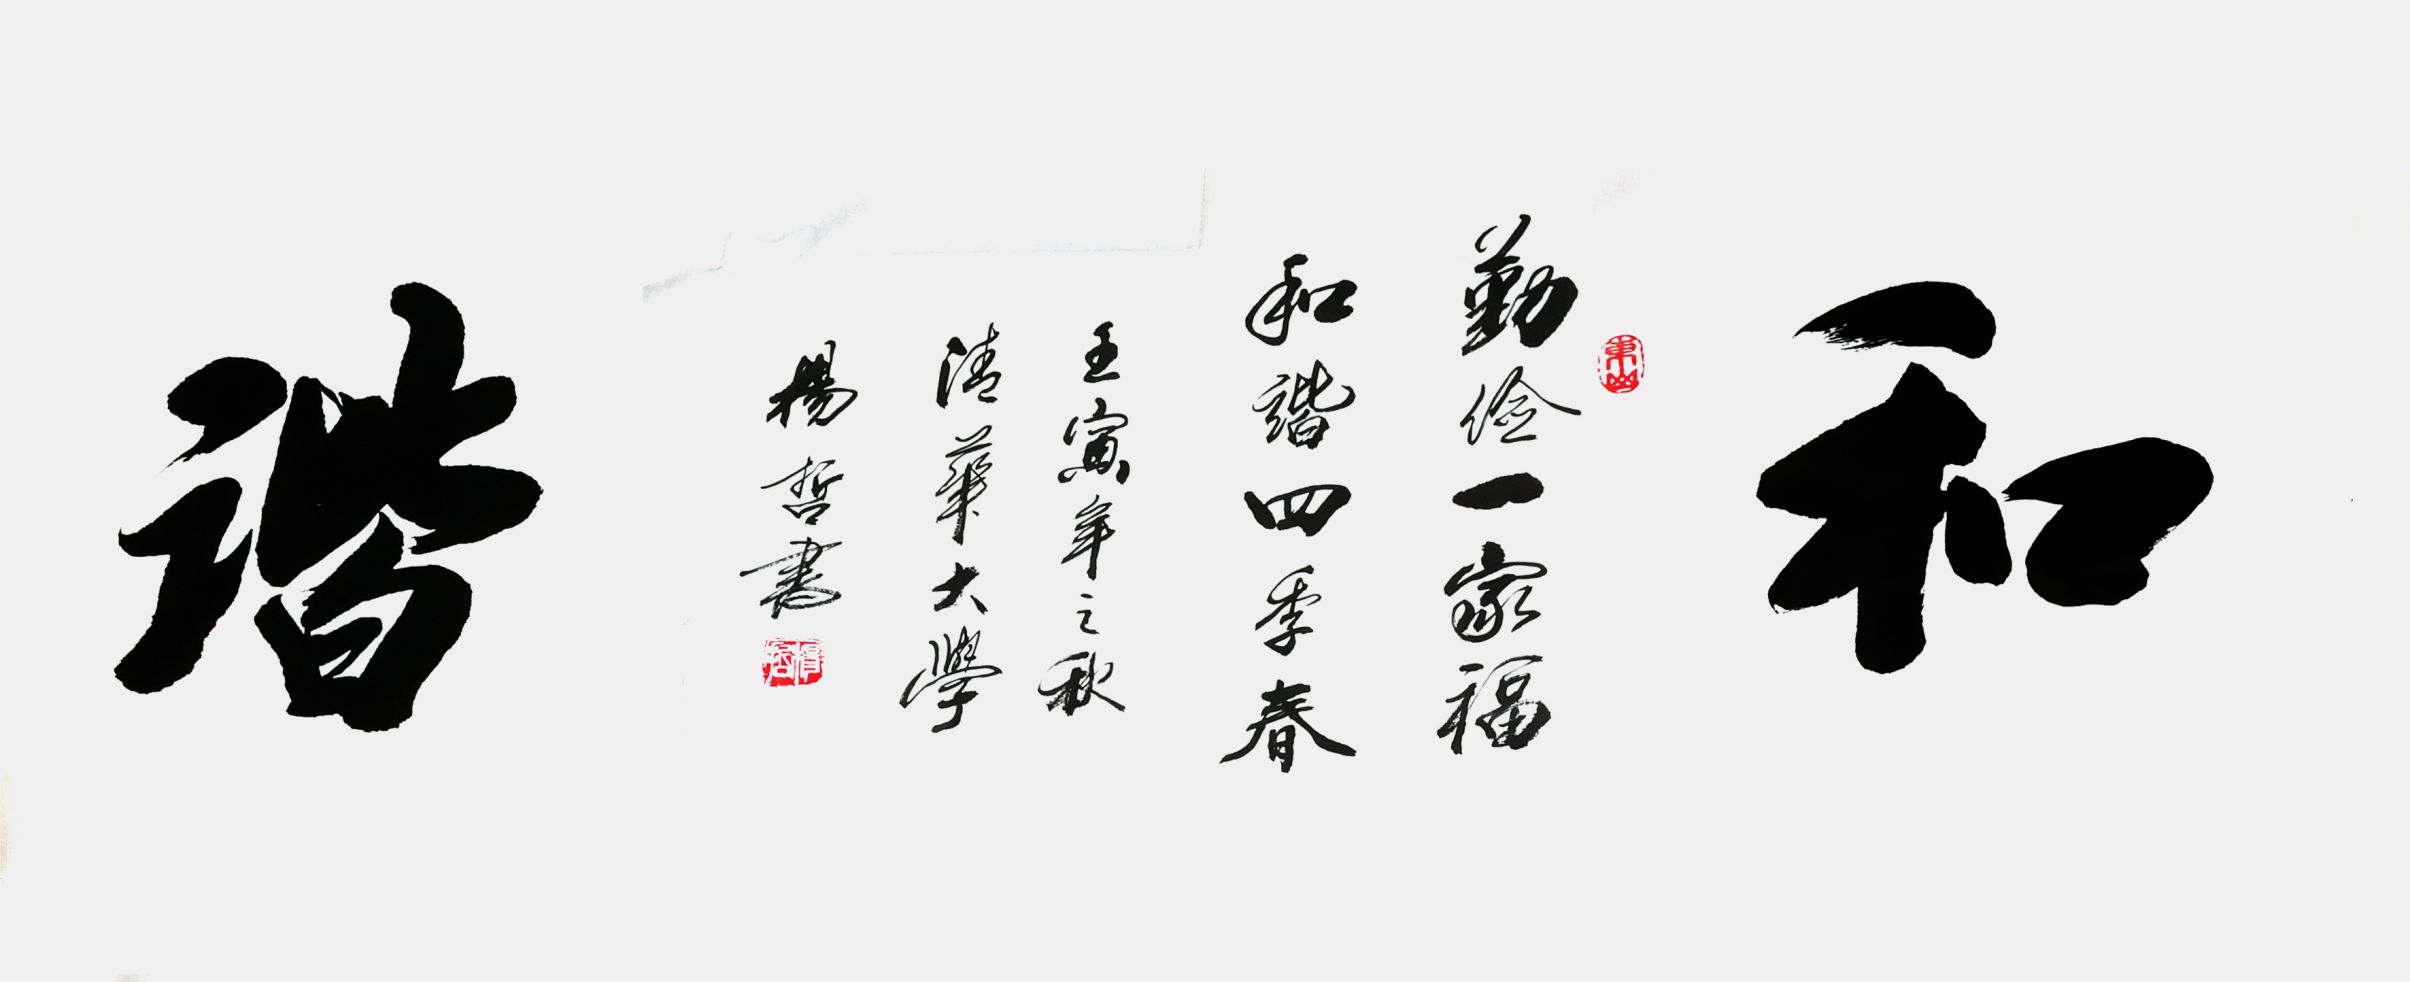 和
勤俭一家福
和谐四季春
壬寅年之秋
清華大學
楊哲書
谐